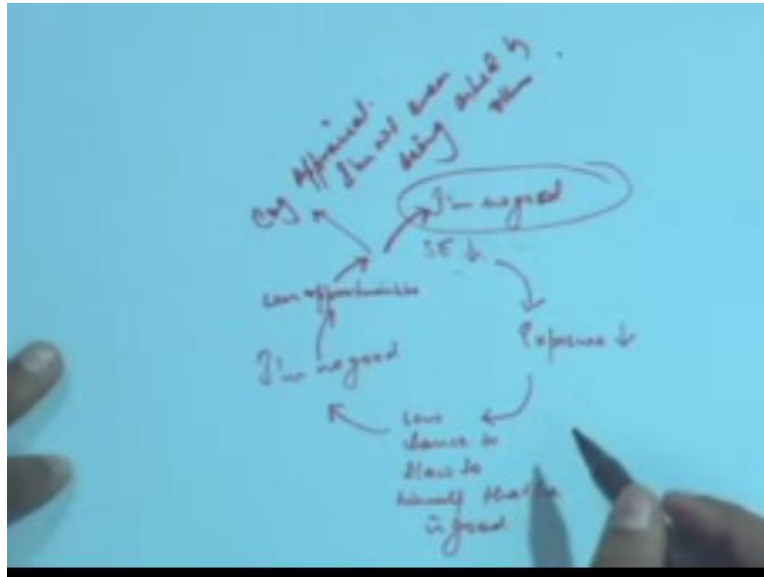 cog appraisal.
I'm not even
being asked by
I'm no good
SE ↓
Exposure ↓
less
chance to
show to
himself that he
is good
I'm no good
less opportunities